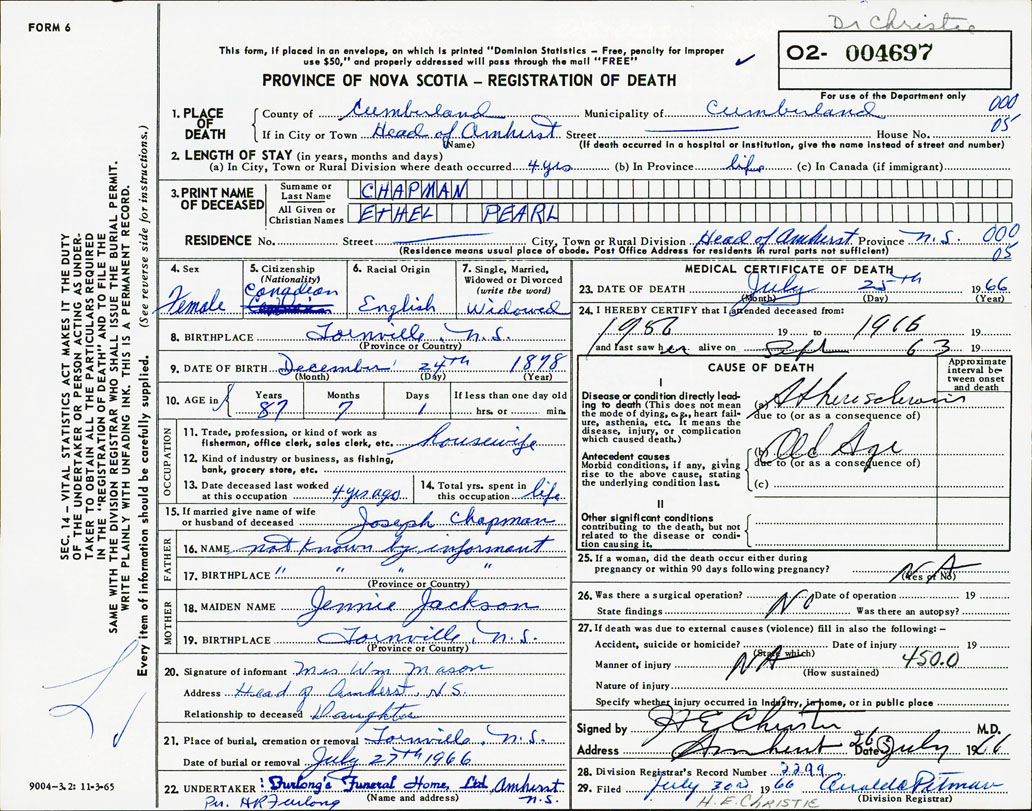 FORM 6
Dr Christie
This form, if placed in an envelope, on which is printed "Dominion Statistics – Free, penalty for improper
use $50," and properly addressed will pass through the mail "FREE"
O2- 004697
PROVINCE OF NOVA SCOTIA – REGISTRATION OF DEATH
For use of the Department only
1. PLACE OF DEATH County of Cumberland Municipality of Cumberland 000
If in City or Town Head of Amherst Street House No. 05
(Name) (If death occurred in a hospital or institution, give the name instead of street and number)
2. LENGTH OF STAY (in years, months and days)
(a) In City, Town or Rural Division where death occurred 4 yrs (b) In Province life (c) In Canada (if immigrant)
3. PRINT NAME OF DECEASED Surname or Last Name CHAPMAN
All Given or Christian Names ETHEL PEARL
RESIDENCE No. Street City, Town or Rural Division Head of Amherst Province N.S. 000
(Residence means usual place of abode. Post Office Address for residents in rural parts not sufficient) 05
4. Sex Female
5. Citizenship (Nationality) Canadian
6. Racial Origin English
7. Single, Married, Widowed or Divorced (write the word) Widowed
8. BIRTHPLACE N.S.
(Province or Country)
9. DATE OF BIRTH December 24th 1878
(Month) (Day) (Year)
10. AGE in Years Months Days If less than one day old
87 7 1 hrs. or min.
OCCUPATION
11. Trade, profession, or kind of work as
fisherman, office clerk, sales clerk, etc. housewife
12. Kind of industry or business, as fishing,
bank, grocery store, etc.
13. Date deceased last worked
at this occupation 4 yrs ago
14. Total yrs. spent in
this occupation life
15. If married give name of wife
or husband of deceased Joseph Chapman
FATHER
16. NAME not known by informant
17. BIRTHPLACE " " " "
(Province or Country)
MOTHER
18. MAIDEN NAME Jennie Jackson
19. BIRTHPLACE N.S.
(Province or Country)
20. Signature of informant Mrs Wm Mason
Address Head of Amherst N.S.
Relationship to deceased Daughter
21. Place of burial, cremation or removal N.S.
Date of burial or removal July 27th 1966
22. UNDERTAKER Furlong's Funeral Home, Ltd Amherst N.S.
(Name and address)
Per. H R Furlong
MEDICAL CERTIFICATE OF DEATH
23. DATE OF DEATH July 25th 1966
(Month) (Day) (Year)
24. I HEREBY CERTIFY that I attended deceased from:
19 to 1966 19
and last saw her alive on Sept 63 19
CAUSE OF DEATH
Approximate interval between onset and death
I
Disease or condition directly leading
to death (This does not mean
the mode of dying, e.g., heart failure,
asthenia, etc. It means the
disease, injury, or complication
which caused death.)
(a) Atherosclerosis
due to (or as a consequence of)
Antecedent causes
Morbid conditions, if any, giving
rise to the above cause, stating
the underlying condition last.
(b) Old Age
due to (or as a consequence of)
(c)
II
Other significant conditions
contributing to the death, but not
related to the disease or condition
causing it.
25. If a woman, did the death occur either during
pregnancy or within 90 days following pregnancy? NA
(Yes or No)
26. Was there a surgical operation? No Date of operation 19
State findings Was there an autopsy?
27. If death was due to external causes (violence) fill in also the following: –
Accident, suicide or homicide? Date of injury 19
(State which)
Manner of injury NA 450.0
(How sustained)
Nature of injury
Specify whether injury occurred in Industry, in home, or in public place
Signed by H E Christie M.D.
Address Amherst Date 26 July 1966
28. Division Registrar's Record Number
29. Filed July 1966
(Division Registrar)
H.E. CHRISTIE
SEC. 14 – VITAL STATISTICS ACT MAKES IT THE DUTY
OF THE UNDERTAKER OR PERSON ACTING AS UNDERTAKER
TO OBTAIN ALL THE PARTICULARS REQUIRED
IN THE "REGISTRATION OF DEATH" AND TO FILE THE
SAME WITH THE DIVISION REGISTRAR WHO SHALL ISSUE THE BURIAL PERMIT.
WRITE PLAINLY WITH UNFADING INK. THIS IS A PERMANENT RECORD.
Every item of information should be carefully supplied. (See reverse side for instructions.)
9004–3.2: 11-3-65